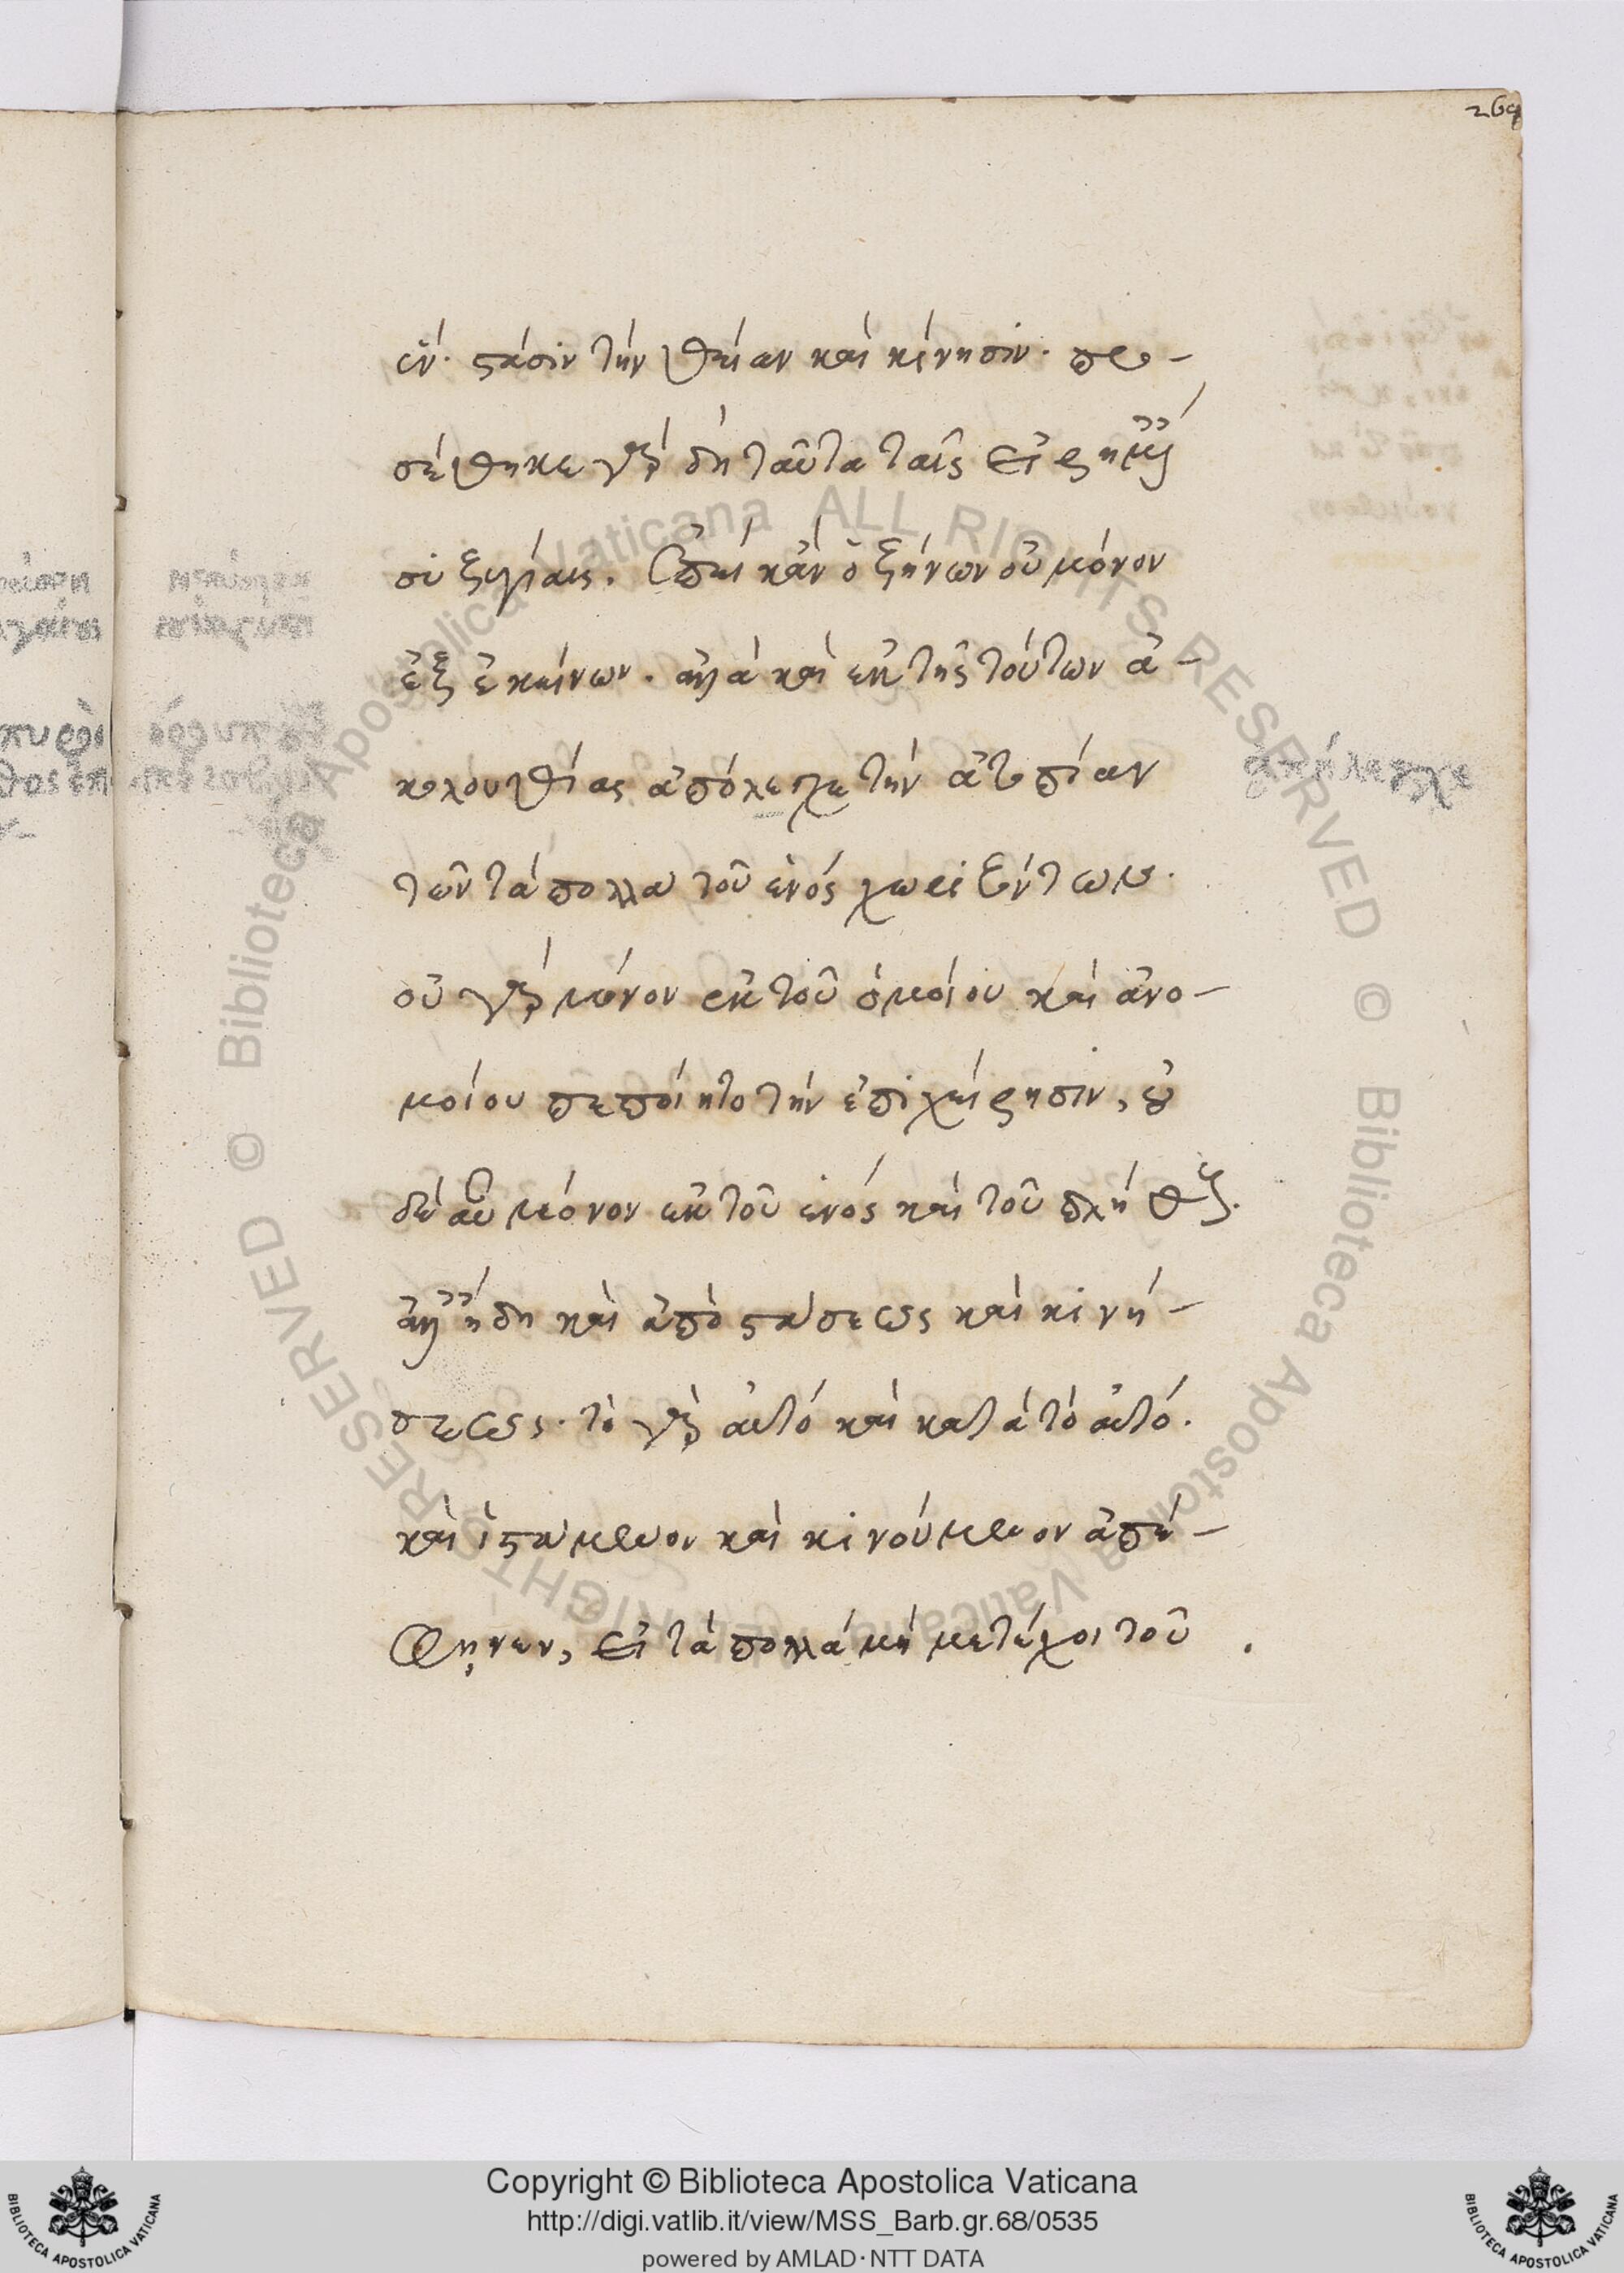 269
ἕν· στάσιν τὴν θείαν καὶ κίνησιν· προ-
σέθηκε γὰρ δὴ ταῦτα ταῖς εἰρημέναις
συζυγίαις. Ἐπεὶ κἂν ὁ ζήνων οὐ μόνον
ἐξ ἐκείνων· ἀλλὰ καὶ ἐκ τῆς τούτων ἀ-
κολουθίας ἀπόλεγχε τὴν ἀτοπίαν
τῶν τὰ πολλὰ τοῦ ἑνός χωριζόντων·
οὐ γὰρ μόνον ἐκ τοῦ ὁμοίου καὶ ἀνο-
μοίου πεποίητο τὴν ἐπιχείρησιν, οὐ
δὲ αὖ μόνον ἐκ τοῦ ἑνός καὶ τοῦ πλήθους·
ἀλλ' ἤδη καὶ ἀπὸ στάσεως καὶ κινή-
σεως· τὸ γὰρ αὐτό καὶ κατὰ τὸ αὐτό·
καὶ ἱστάμενον καὶ κινούμενον ἀπέ-
φηνεν, εἰ τὰ πολλά μὴ μετέχοι τοῦ
ἀπήλεγχε
Copyright © Biblioteca Apostolica Vaticana
http://digi.vatlib.it/view/MSS_Barb.gr.68/0535
powered by AMLAD·NTT DATA
BIBLIOTECA APOSTOLICA VATICANA
BIBLIOTECA APOSTOLICA VATICANA
© Biblioteca Apostolica Vaticana ALL RIGHTS RESERVED
© Biblioteca Apostolica Vaticana ALL RIGHTS RESERVED